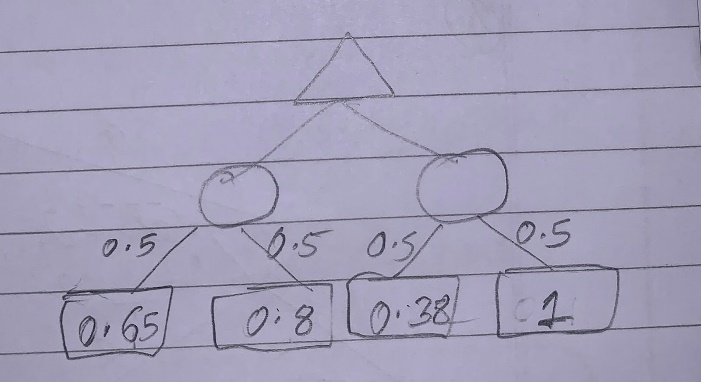 0.5 0.5 0.5 0.5
0.65 0.8 0.38 1